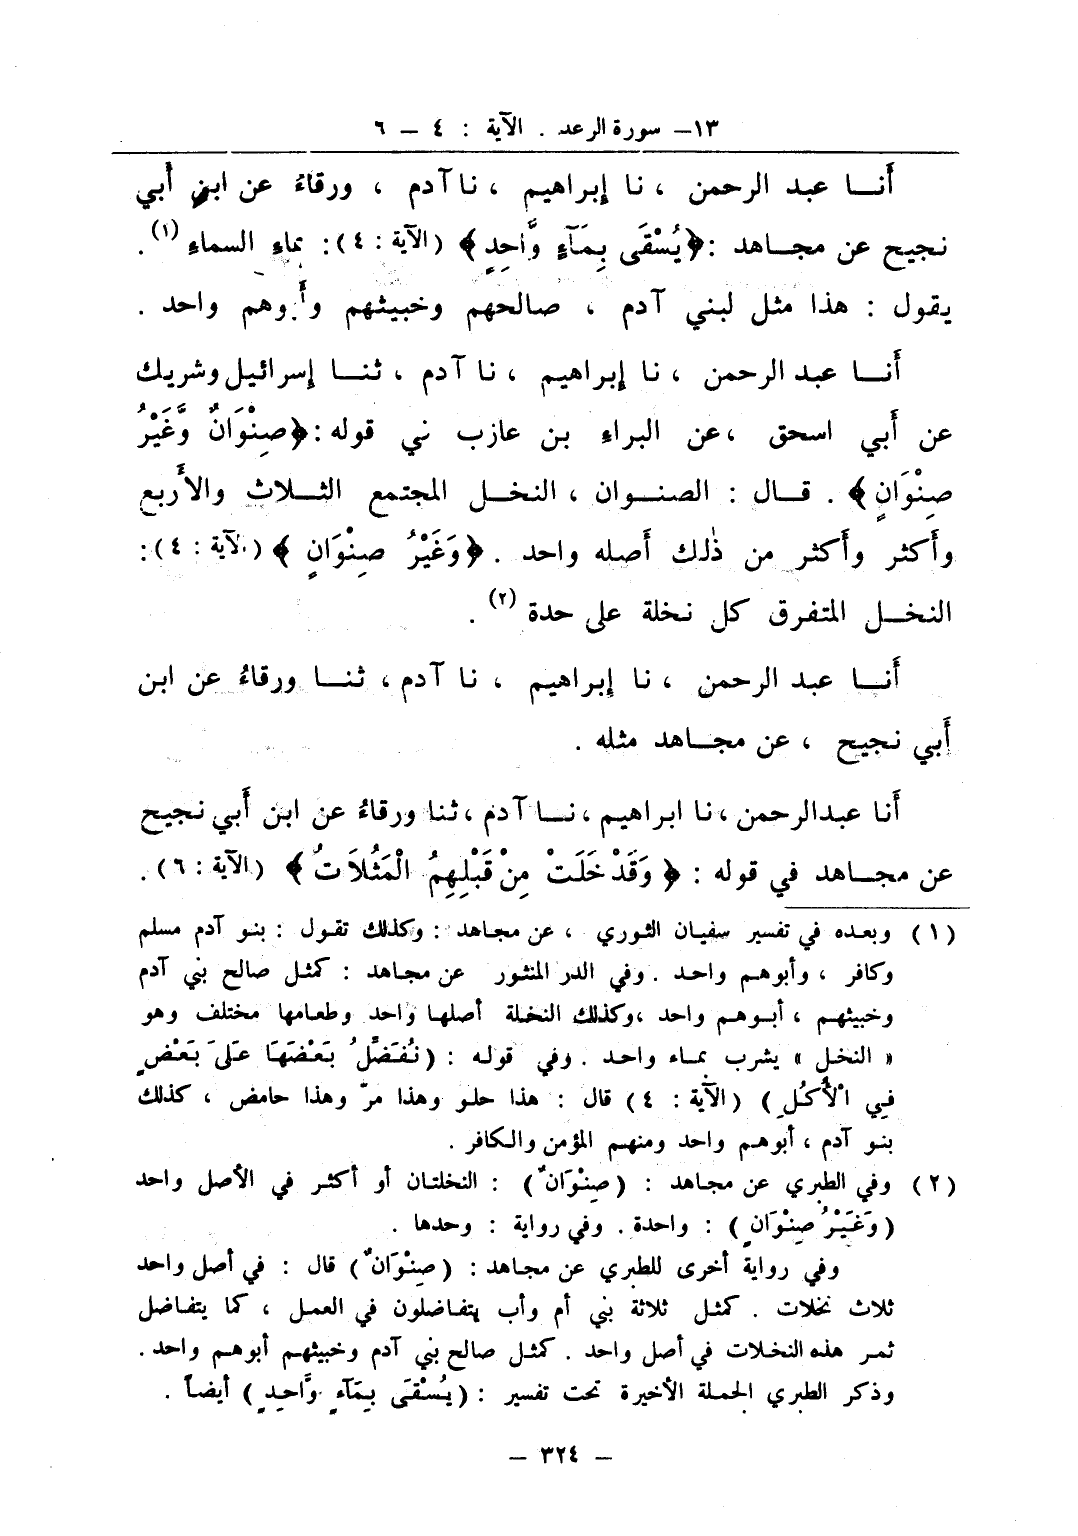 ١٣– سورة الرعد . الآية : ٤ – ٦
أنا عبد الرحمن ، نا إبراهيم ، نا آدم ، ورقاءُ عن ابن أبي
نجيح عن مجاهد : ﴿ يُسْقَى بِمَآءٍ وَّاحِدٍ ﴾ (الآية : ٤) : بماءِ السماءِ (١) .
يقول : هذا مثل لبني آدم ، صالحهم وخبيثهم وأبوهم واحد .
أنا عبد الرحمن ، نا إبراهيم ، نا آدم ، ثنا إسرائيل وشريك
عن أبي اسحق ، عن البراءِ بن عازب ني قوله : ﴿ صِنْوَانٌ وَّغَيْرُ
صِنْوَانٍ ﴾ . قال : الصنوان ، النخل المجتمع الثلاث والأربع
وأكثر وأكثر من ذٰلك أصله واحد . ﴿ وَغَيْرُ صِنْوَانٍ ﴾ (الآية : ٤) :
النخل المتفرق كل نخلة على حدة (٢) .
أنا عبد الرحمن ، نا إبراهيم ، نا آدم ، ثنا ورقاءُ عن ابن
أبي نجيح ، عن مجاهد مثله .
أنا عبدالرحمن ، نا ابراهيم ، نا آدم ، ثنا ورقاءُ عن ابن أبي نجيح
عن مجاهد في قوله : ﴿ وَقَدْ خَلَتْ مِنْ قَبْلِهِمُ الْمَثُلَاتُ ﴾ (الآية : ٦) .
(١) وبعده في تفسير سفيان الثوري ، عن مجاهد : وكذلك تقول : بنو آدم مسلم
وكافر ، وأبوهم واحد . وفي الدر المنثور عن مجاهد : كمثل صالح بني آدم
وخبيثهم ، أبوهم واحد ، وكذلك النخلة أصلها واحد وطعامها مختلف وهو
« النخل » يشرب بماء واحد . وفي قوله : (نُفَضِّلُ بَعْضَهَا عَلَى بَعْضٍ
فِي الْأُكُلِ ) (الآية : ٤) قال : هذا حلو وهذا مرّ وهذا حامض ، كذلك
بنو آدم ، أبوهم واحد ومنهم المؤمن والكافر .
(٢) وفي الطبري عن مجاهد : (صِنْوَانٌ) : النخلتان أو أكثر في الأصل واحد
(وَغَيْرُ صِنْوَانٍ) : واحدة . وفي رواية : وحدها .
وفي رواية أخرى للطبري عن مجاهد : (صِنْوَانٌ) قال : في أصل واحد
ثلاث نخلات . كمثل ثلاثة بني أم وأب يتفاضلون في العمل ، كما يتفاضل
ثمر هذه النخلات في أصل واحد . كمثل صالح بني آدم وخبيثهم أبوهم واحد .
وذكر الطبري الجملة الأخيرة تحت تفسير : (يُسْقَى بِمَآءٍ وَّاحِدٍ) أيضاً .
– ٣٢٤ –